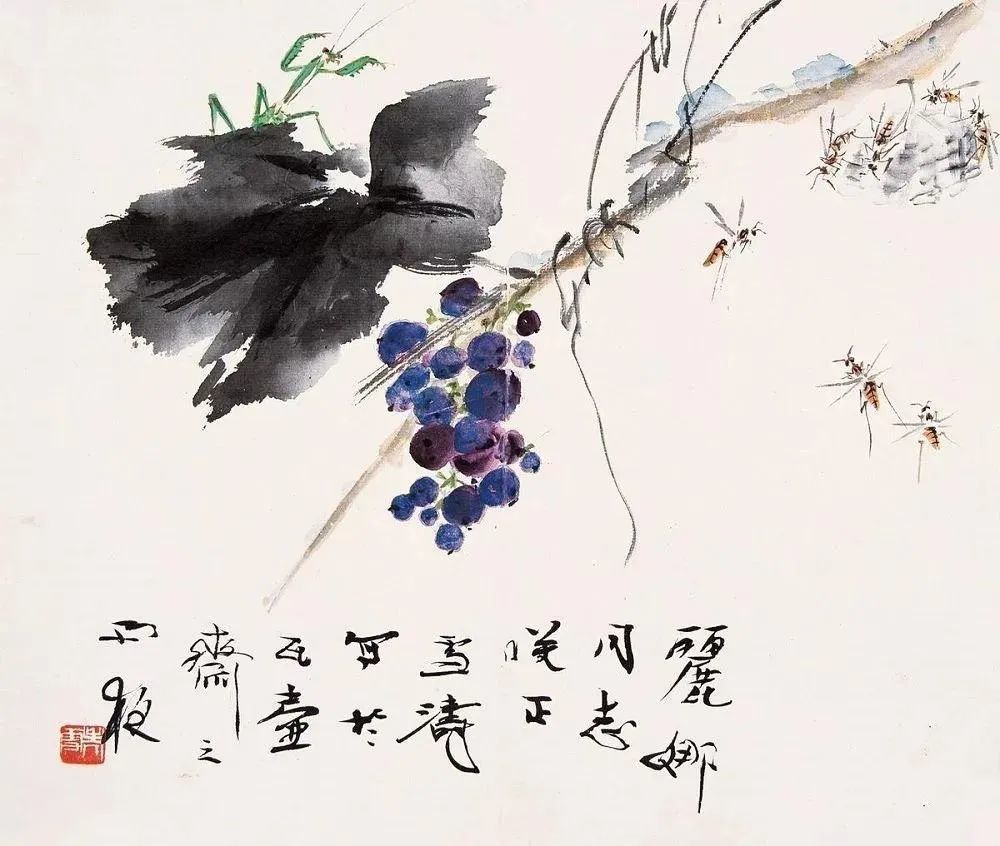 麗娜
同志
咲正
雪濤
寫於
瓦壺
齋之
雨夜